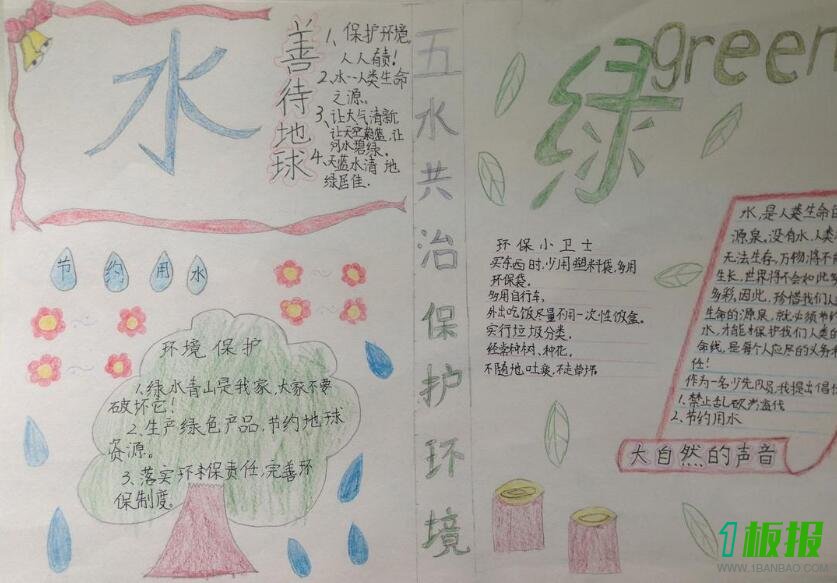 水
善待地球
1、保护环境,
人人有责!
2.水一人类生命
之源。
3、让大气清新
让天空蔚蓝,让
河水碧绿。
4.天蓝水清 地
绿居佳.
节约用水
环境保护
1.绿水青山是我家,大家不要
破坏它!
2.生产绿色产品,节约地球
资源。
3.落实环保责任,完善环
保制度。
五水共治保护环境
绿
green
环保小卫士
买东西时,少用塑料袋,多用
环保袋。
多用自行车,
外出吃饭尽量不用一次性饭盒。
实行垃圾分类,
经常种树、种花,
不随地吐痰,不走草坪
水,是人类生命的
源泉。没有水,人类
无法生存,万物将不能
生长,世界将不会如此多
多彩,因此,珍惜我们人
生命的源泉,就必须节约
水,才能保护我们人类的
命线,是每个人应尽的义务和
任!
作为一名少先队员,我提出倡
1.禁止乱砍滥伐
2.节约用水
大自然的声音
1板报
WWW.1BANBAO.COM